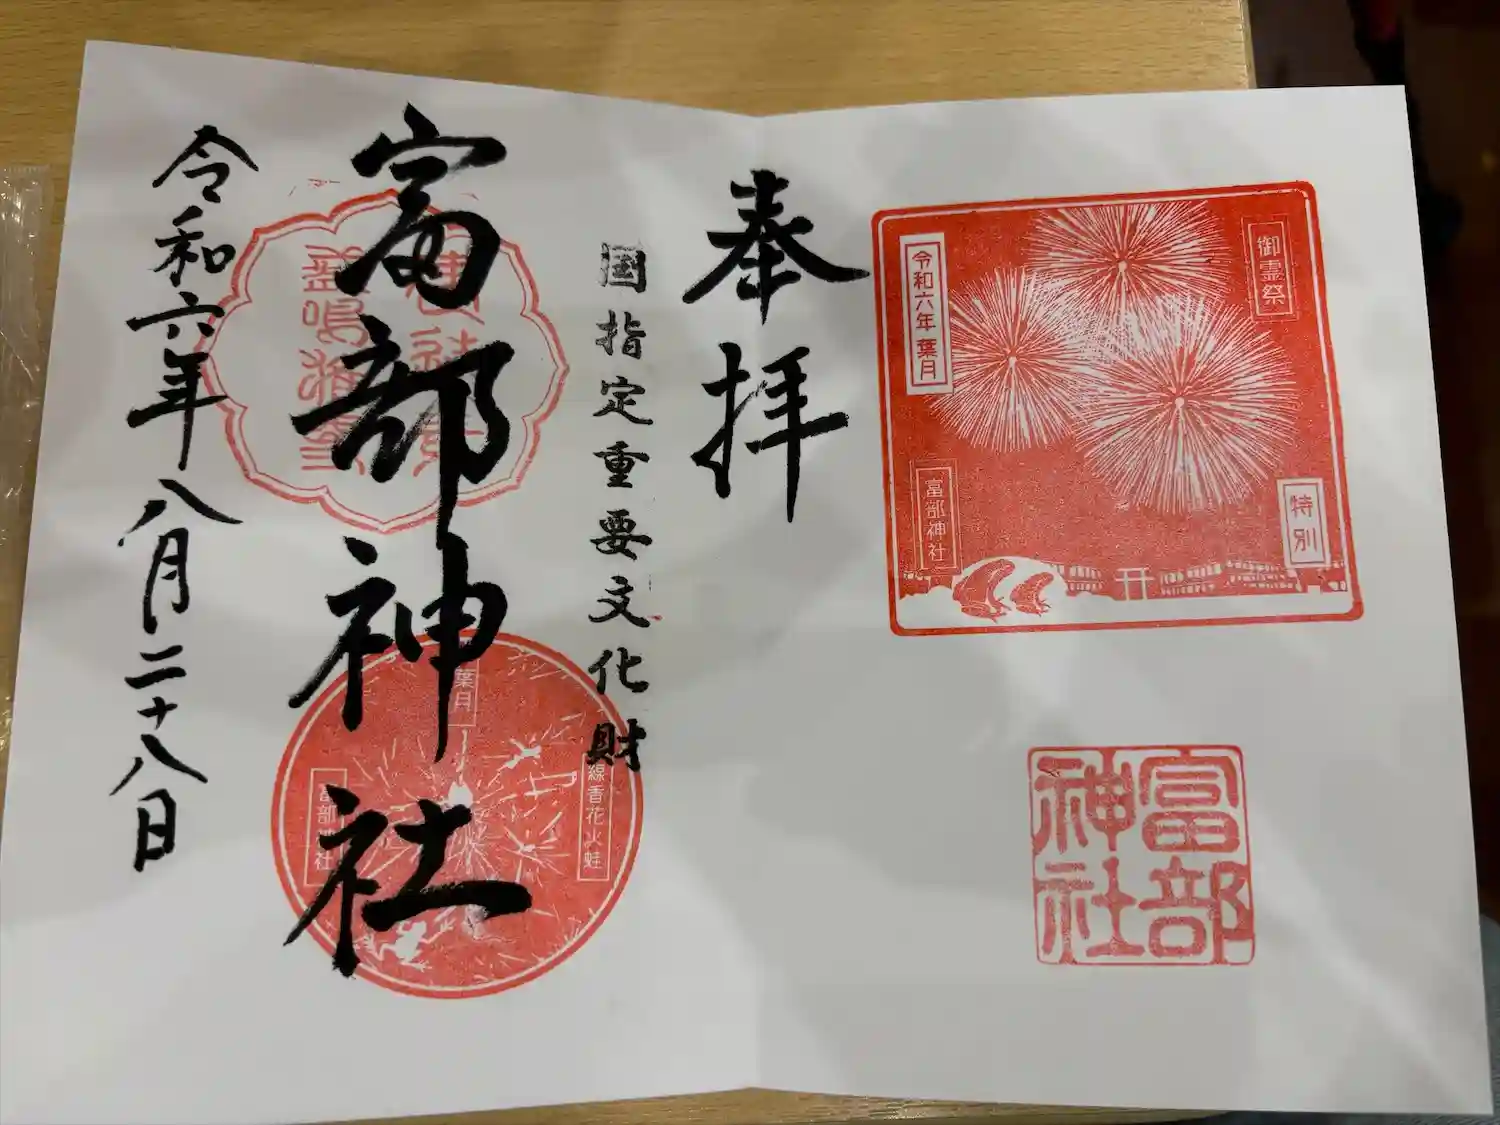 御霊祭
令和六年 葉月
特別
富部神社
富部
神社
奉拝
国指定重要文化財
富部神社
葉月
線香花火蛙
富部神社
令和六年八月二十八日